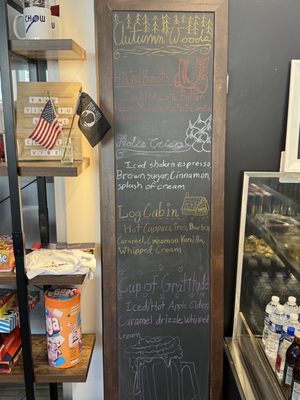 CHOW
Autumn Woods
Hiking Boots
Iced/Hot Latte, Butter
Polar Crisp
Iced shaken espresso
Brown sugar, Cinnamon,
splash of Cream
Log Cabin
Hot Cappuccino, Bourbon
Caramel, Cinnamon Vanilla,
Whipped Cream
Cup of Gratitude
Iced/Hot Apple Cider,
Caramel drizzle, Whipped
Cream